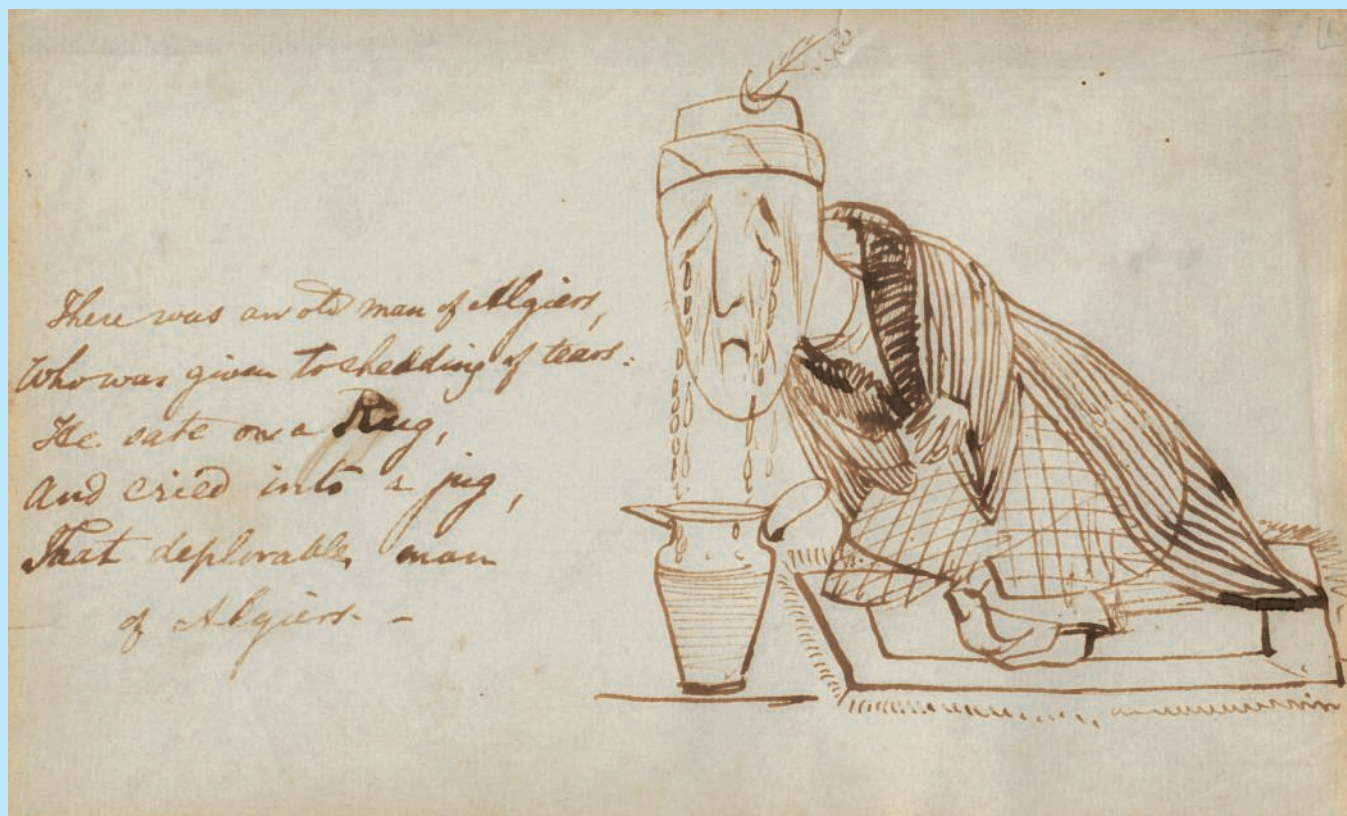 There was an old man of Algiers,
Who was given to shedding of tears:
He sate on a Rug,
And cried into a jug,
That deplorable man
of Algiers. -